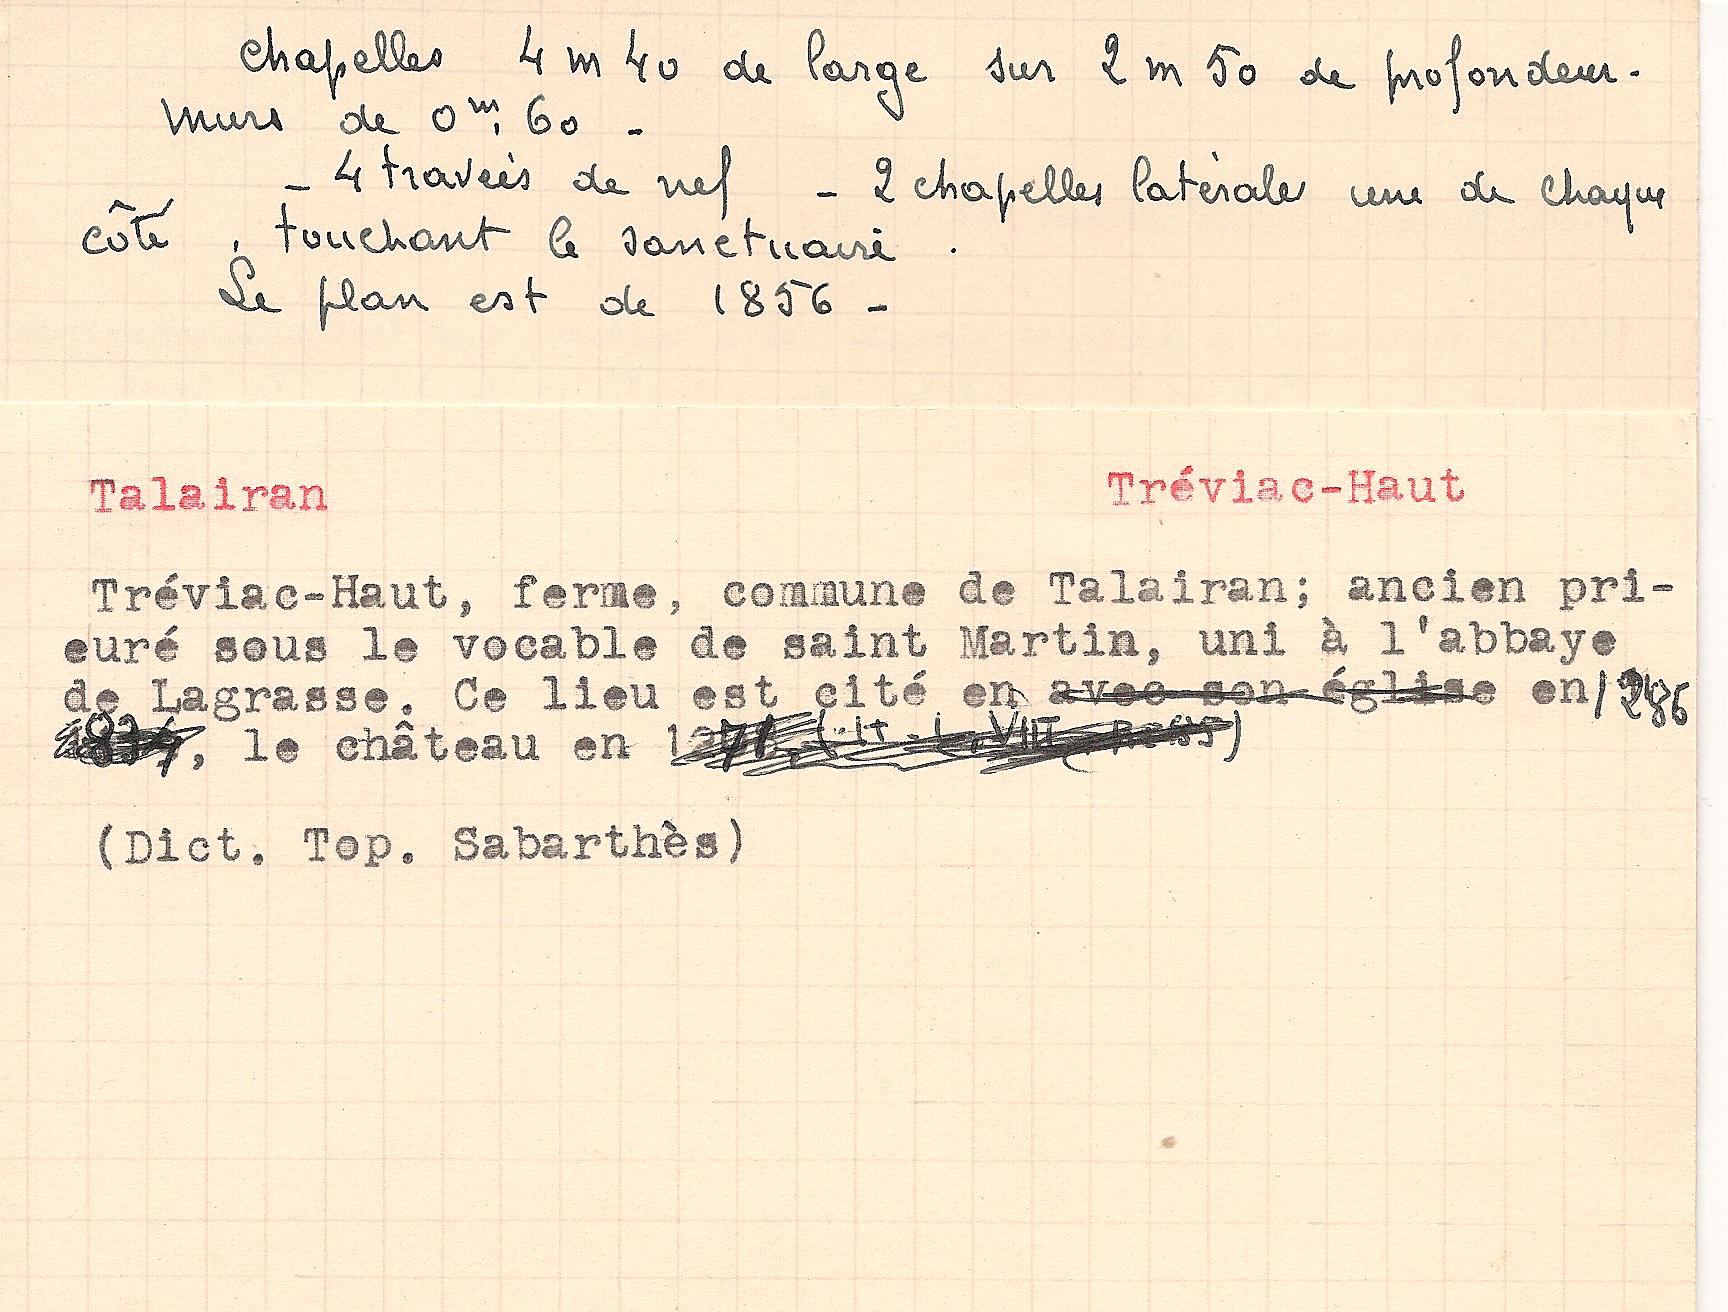 chapelles 4 m 40 de large sur 2 m 50 de profondeur.
Murs de 0m,60 -
- 4 travées de nef - 2 chapelles latérales une de chaque
côté, touchant le sanctuaire.
Le plan est de 1856 -
Talairan Tréviac-Haut
Tréviac-Haut, ferme, commune de Talairan; ancien pri-
euré sous le vocable de saint Martin, uni à l'abbaye
de Lagrasse. Ce lieu est cité en avec son église en 1286
, le château en
(Dict. Top. Sabarthès)